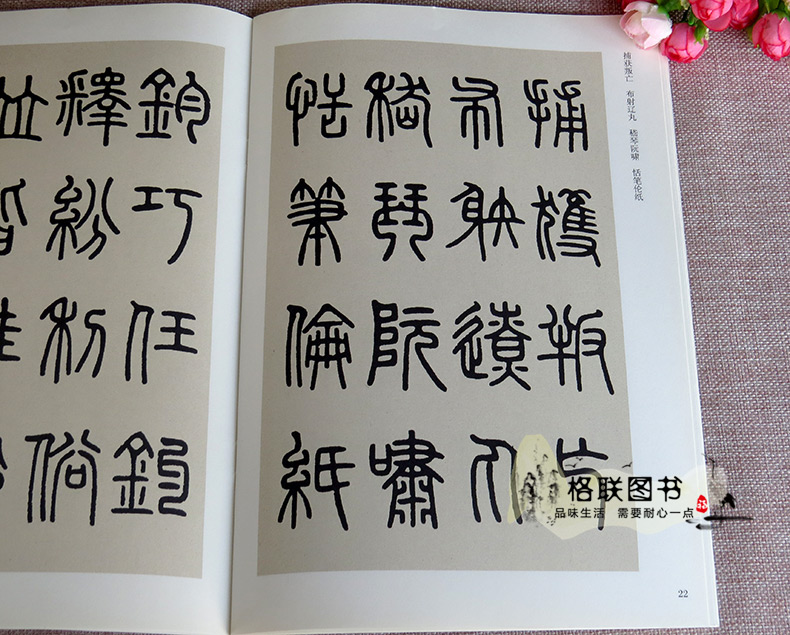 捕获叛亡 布射辽丸 嵇琴阮啸 恬笔伦纸
捕獲叛亡
布射遼丸
嵇琴阮嘯
恬筆倫紙
鈞巧任釣
釋紛利俗
22
格联图书
品味生活 需要耐心一点